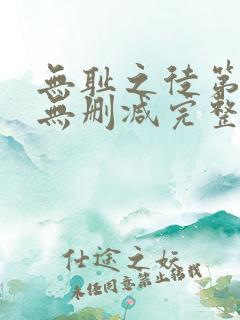 無耻之徒第
無删减完整
仕途之妖
未经同意禁止转载